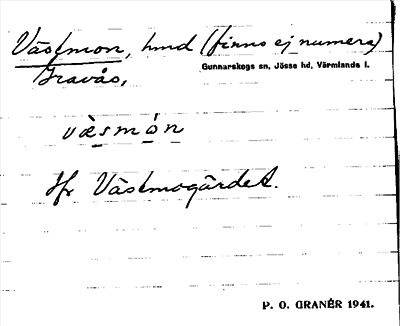 Västmon, hmd (finns ej numera)
Gunnarskogs sn, Jösse hd, Värmlands l.
Gravås,
vàsmón
Jfr Västmogärdet.
P. O. GRANÉR 1941.